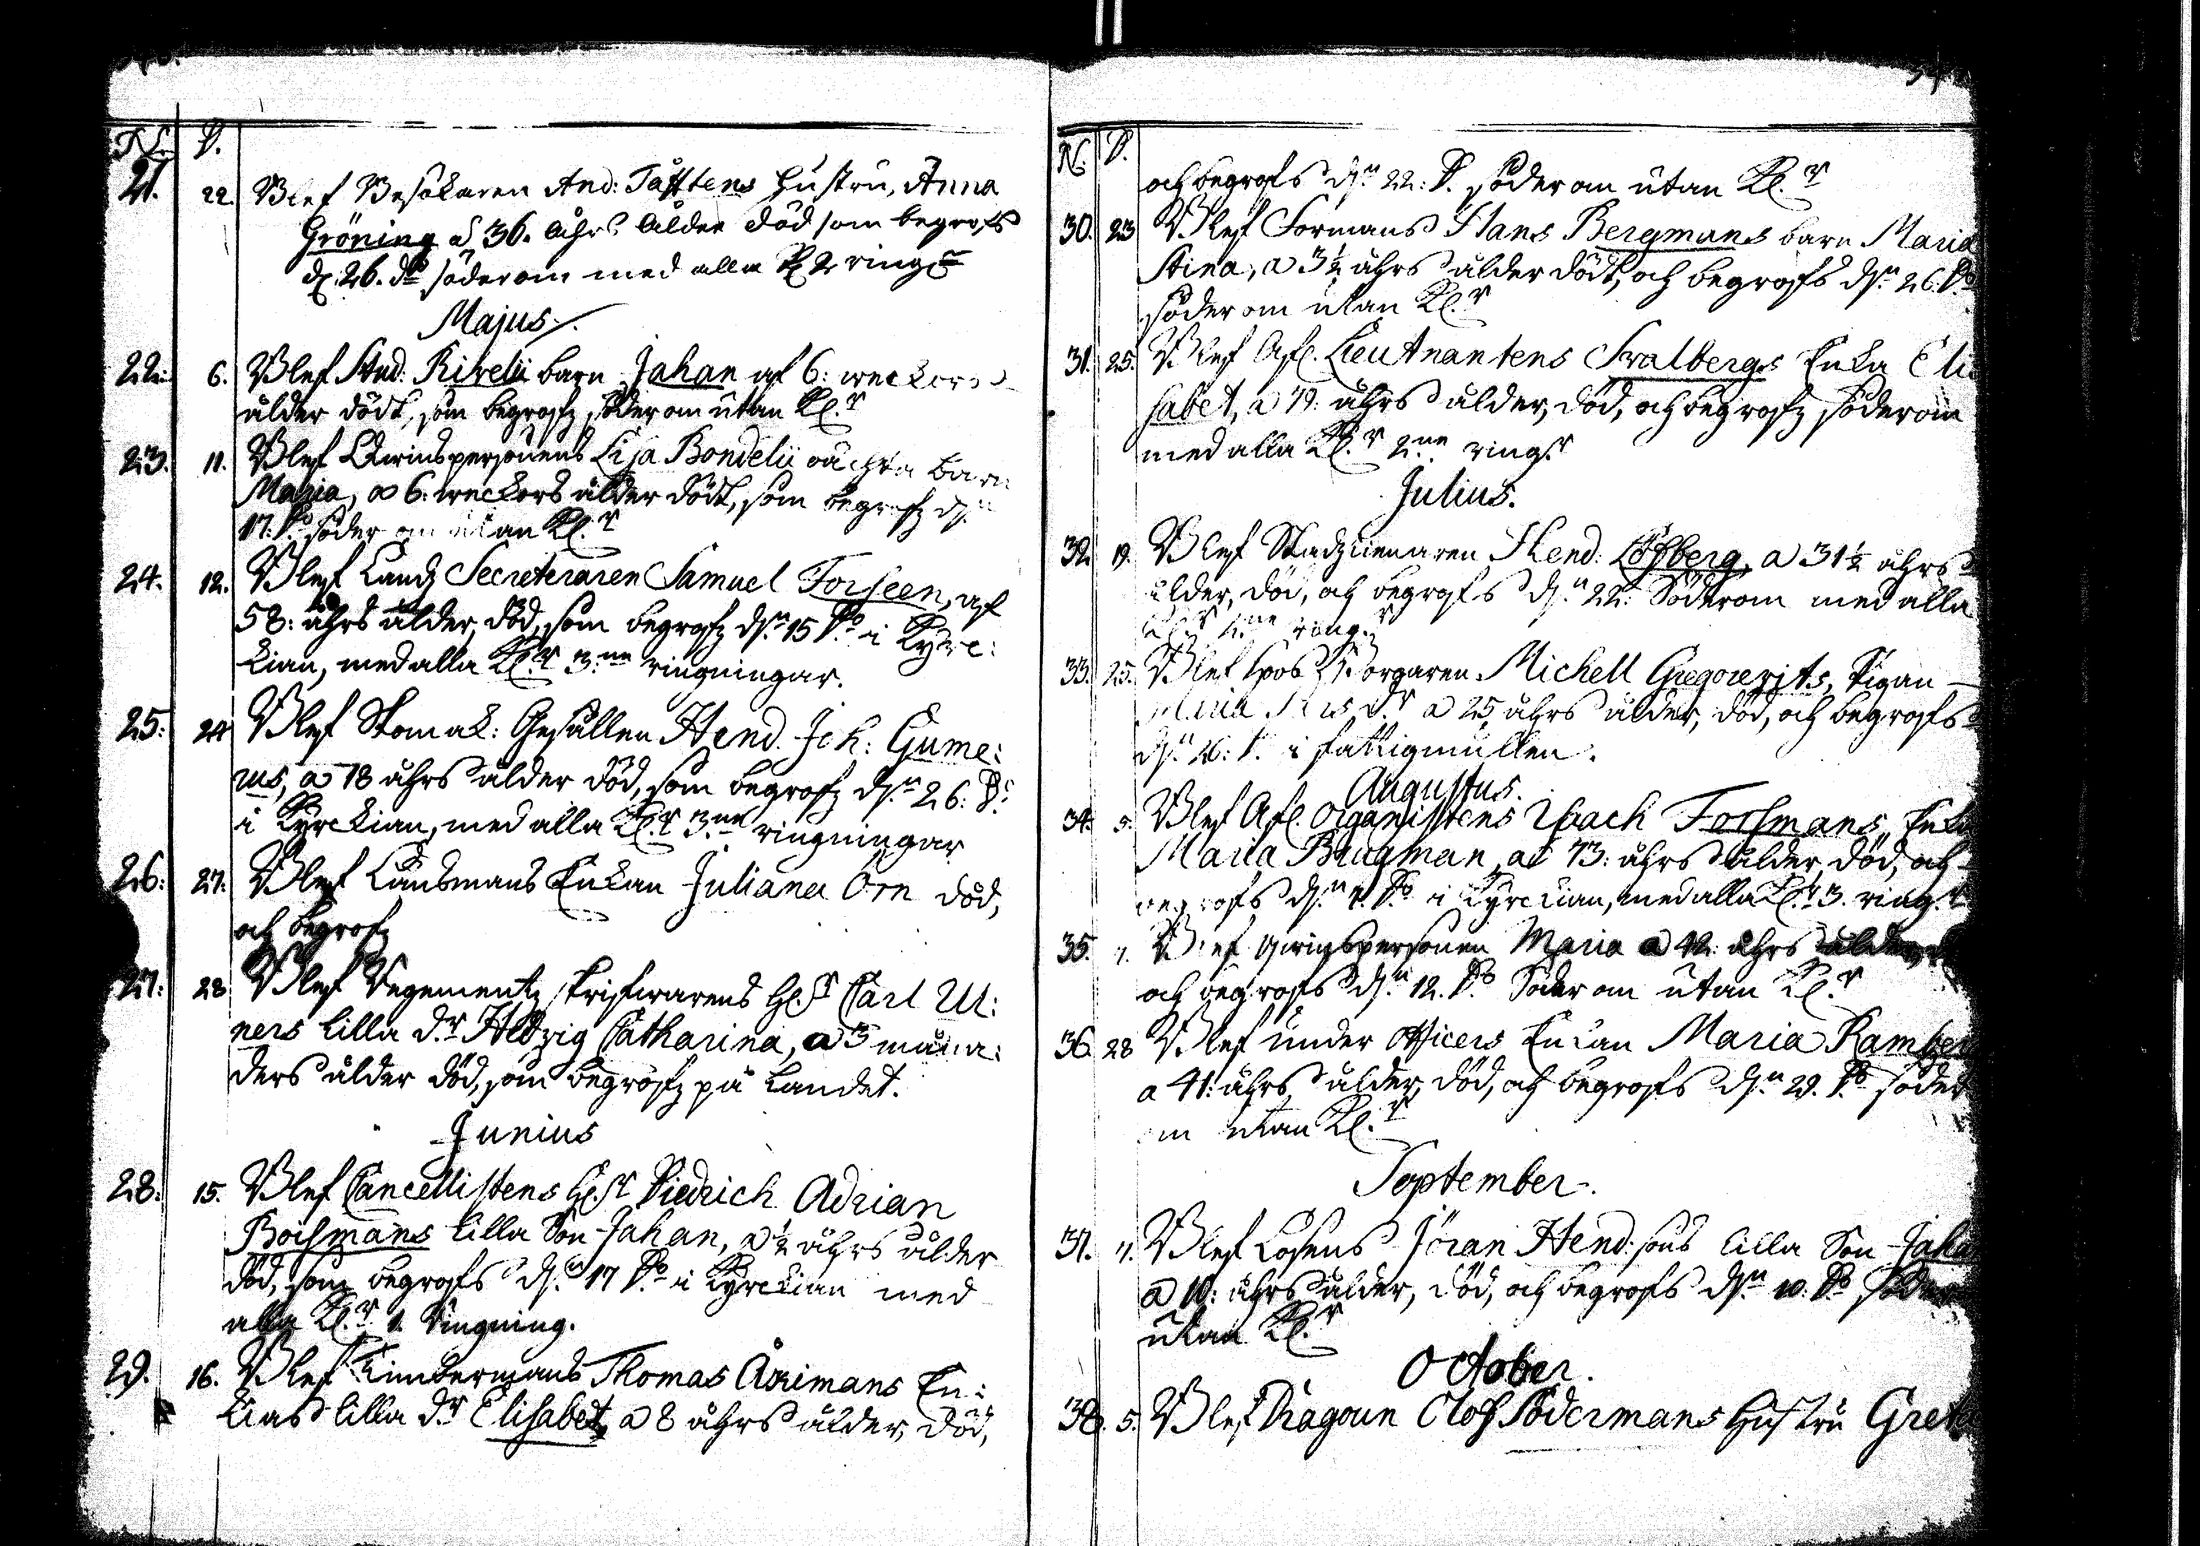 N. D.
21. 22. Blef Besökaren And: Tåfttens Hustru, Anna
Gröning a 36. åhrs ålder död som begrofs
d. 26. do söder om med alla Kl. 2 ring.
Majus.
22. 6. Blef And: Rivelii barn Johan af 6: weckors
ålder dödt, som begrofz söder om utan Kl.r
23. 11. Blef Qwinspersonens Lisa Bondelii oächta barn
Maria, a 6: weckors ålder dödt, som begrofz d.n
17. Do söder om utan Kl.r
24. 12. Blef Landz Secreteraren Samuel Forseen, af
58: åhrs ålder, död, som begrofz d.n 15 Do i Kyrc:
kian, med alla Kl.r 3.ne ringningar.
25: 24 Blef Skomak: Gesällen Hend. Joh: Gume:
rus, a 18 åhrs ålder död, som begrofz d.n 26: Do
i Kyrckian, med alla Kl.r 3.ne ringningar
26: 27: Blef Länsmans Enkan Juliana Örn död,
och begrofz
27: 28 Blef Regementz skrifwarens H. Carl Ul:
ners lilla d.r Hedvig Catharina, a 3 måna:
ders ålder död, som begrofz på Landet.
Junius
28: 15. Blef Cancellistens H. Diedrich Adrian
Boismans lilla Son Johan, a ½ åhrs ålder
död, som begrofs d.n 17 Do i Kyrckian med
alla Kl.r 1. Ringning.
29. 16. Blef Timbermans Thomas Åkrimans En:
kias lilla d.r Elisabet, a 8 åhrs ålder, död,
N. D.
och begrofs d.n 22: D. söder om utan Kl.r
30. 23 Blef Formans Hans Bergmans barn Maria
Stina, a 3½ åhrs ålder dödt, och begrofs d.n 26. Do
söder om utan Kl.r
31. 25. Blef Afl. Lieutnantens Svalbergs Enka Eli
sabet, a 79: åhrs ålder, död, och begrofz söder om
med alla Kl.r 2.ne ring.r
Julius.
32 19. Blef Stadztienaren Hend: Löfberg, a 31½ åhrs
ålder, död, och begrofs d.n 22: Söder om med alla
Kl.r 2.ne ring.r
33. 25. Blef Borgaren Michell Gregorevits, Pigan
Maria d.r a 25 åhrs ålder, död, och begrofs
d.n 26: D. i fattigmullen.
Augustus.
34. 5. Blef Afl. Organistens Isach Forsmans, Enka
Maria Brugman, af 73: åhrs ålder, död, och
begrofs d.n Do i Kyrckian, med alla Kl.r 3. ring.r
35. 7. Blef qwinspersonen Maria a 42: åhrs ålder,
och begrofs d.n 12. Do Söder om utan Kl.r
36. 28 Blef under Officers Enkan Maria Ramberg
a 41: åhrs ålder, död, och begrofs d.n 29. Do söder
om utan Kl.r
September.
37. 7. Blef Losens Jöran Hend: sons lilla Son Joha
a 10: åhrs ålder, död, och begrofs d.n 10: Do söder
utan Kl.r
October.
38. 5. Blef Dragoun Olof Södermans Hustru Greta